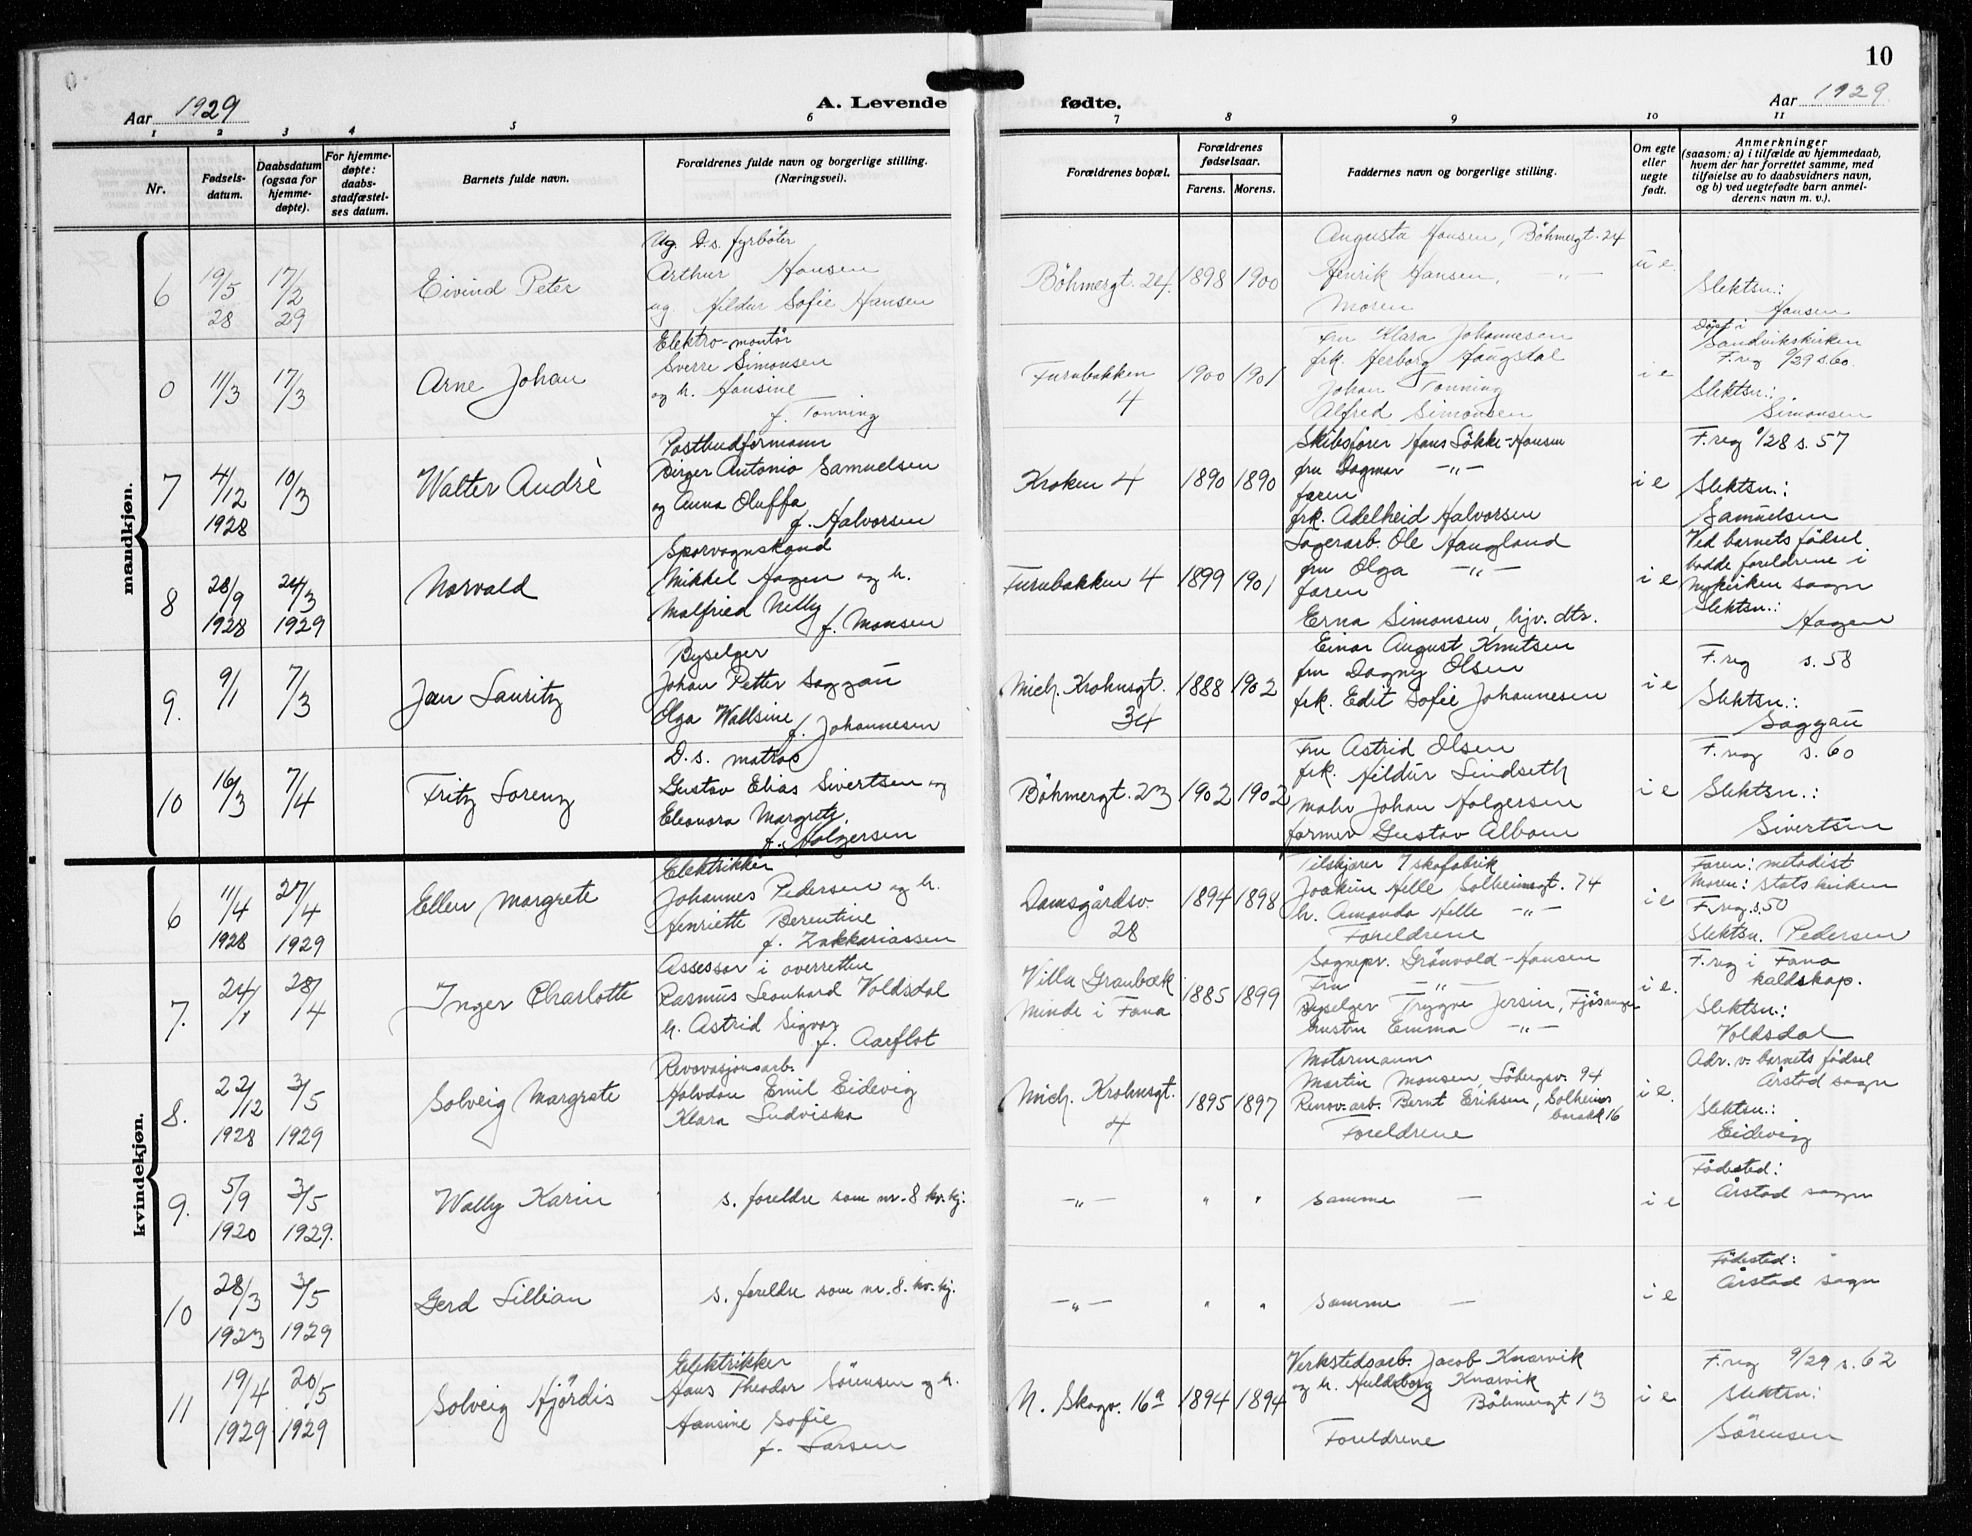 10
Aar 1929
A. Levende fødte.
Aar 1929
1 2 3 4 5 6 7 8 9 10 11
Nr.
Fødsels-
datum.
Daabsdatum
(ogsaa for
hjemme-
døpte).
For hjemme-
døpte:
daabs-
stadfæstel-
ses datum.
Barnets fulde navn.
Forældrenes fulde navn og borgerlige stilling.
(Næringsvei).
Forældrenes bopæl.
Forældrenes
fødselsaar.
Farens. Morens.
Faddernes navn og borgerlige stilling.
Om egte
eller
uegte
født.
Anmerkninger
(saasom: a) i tilfælde av hjemmedaab,
hvem der har forrettet samme, med
tilføielse av to daabsvidners navn,
og b) ved uegtefødte barn anmel-
derens navn m. v.).
mandkjøn.
6
19/5
28
17/2
29
Eivind Peter
Ug. D.s. fyrböter
Arthur Hansen
ug. Hildur Sofie Hansen
Böhmergt. 24. 1898 1900
Augusta Hansen, Böhmergt. 24
Henrik Hansen, -"-
Moren
u e.
Slektsn.:
Hansen
0
11/3
17/3
Arne Johan
Elektro-montör
Sverre Simonsen
og h. Hansine
f. Tonning
Furubakken
4
1900 1901
Fru Klara Johannesen
frk. Herborg Haugstal
Johan Tonning
Alfred Simonsen
i e
Döpt i
Sandvikskirken
F.reg 9/29 s. 60.
Slektsn.:
Simonsen
7
4/12
1928
10/3
Walter Andrè
Postbudformann
Birger Antonio Samuelsen
og Anna Oluffa
f. Halvorsen
Kroken 4 1890 1890
Skibsförer Hans Lökke-Hansen
fru Dagmar -"-
faren
frk. Adelheid Halvorsen
i e
F.reg 9/28 s. 57
Slektsn.:
Samuelsen
8
28/9
1928
24/3
1929
Norvald
Sporvognskond
Mikkel Hagen og h.
Malfried Nelly
f. Monsen
Furubakken 4 1899 1901
Lagerarb. Ole Haugland
fru Olga -"-
faren
Erna Simonsen, hjv. dtr.
i e
Ved barnets födsel
bodde foreldrene i
Nykirken sogn
Slektsn.:
Hagen
9.
9/1
7/3
Jan Lauritz
Byselger
Johan Petter Saggau
Olga Wallsine
f. Johannesen
Mich. Krohnsgt.
34
1888 1902
Einar August Knutsen
fru Dagny Olsen
frk. Edit Sofie Johannesen
i e
F.reg s. 58
Slektsn.:
Saggau
10
16/3
7/4
Fritz Lorenz
D.s. matros
Gustav Elias Sivertsen og
Eleonora Margrete
f. Holgersen
Böhmergt. 23 1902 1902
Fru Astrid Olsen
frk. Hildur Lindseth
Maler Johan Holgersen
former Gustav Albom
i e
F.reg s. 60
Slektsn.:
Sivertsen
kvindekjøn.
6
11/4
1928
27/4
1929
Ellen Margrete
Elektrikker
Johannes Pedersen og h.
Henriette Berentine
f. Zakkariassen
Damsgårdsv.
28
1894 1898
Tilskjærer i skofabrik
Joakim Helle Solheimsgt. 74
h. Amanda Helle -"-
Foreldrene
i e
Faren: metodist
Moren: statskirken
F.reg. s. 50
Slektsn. Pedersen
7.
24/1
28/4
Inger Charlotte
Assessor i overretten
Rasmus Leonhard Voldsdal
h. Astrid Signor
f. Aarflot
Villa Granbæk
Minde i Fana
1885 1899
Sognepr. Grönvold-Hansen
Fru -"-
Byselger Trygve Jersin, Fjösanger
hustru Emma -"-
i e.
F.reg i Fana
kaldskap.
Slektsn.:
Voldsdal
8.
22/12
1928
3/5
1929
Solveig Margrete
Revovasjonsarb.
Halvdan Emil Eidevig
Klara Ludviska
Mich. Krohnsgt.
4
1895 1897
Motormann
Martin Monsen, Söbergsv. 94
Renov. arb. Bernt Eriksen, Solheims
barakk 16
Foreldrene
i e.
Adr. v. barnets födsel
Årstad sogn
Slektsn.:
Eidevig
9.
5/9
1920
3/5
1929.
Wally Karin
s. foreldre som nr. 8 kv. kj.
-"- " "
samme -
i e
Födested:
Årstad sogn
10
28/3
1923
3/5
1929
Gerd Lillian
s. foreldre som nr. 8. kv. kj.
-"- " "
samme -
i e
Födested:
Årstad sogn
11
19/4
1929
20/5
1929
Solveig Hjördis
Elektrikker
Hans Theodor Sörensen og h.
Hansine Sofie
f. Larsen
N. Skogv. 16a 1894 1894
Verkstedsarb. Jacob Knarvik
og h. Huldborg Knarvik
Böhmergt 13
Foreldrene
i e
F.reg 9/29 s. 62
Slektsn:
Sörensen